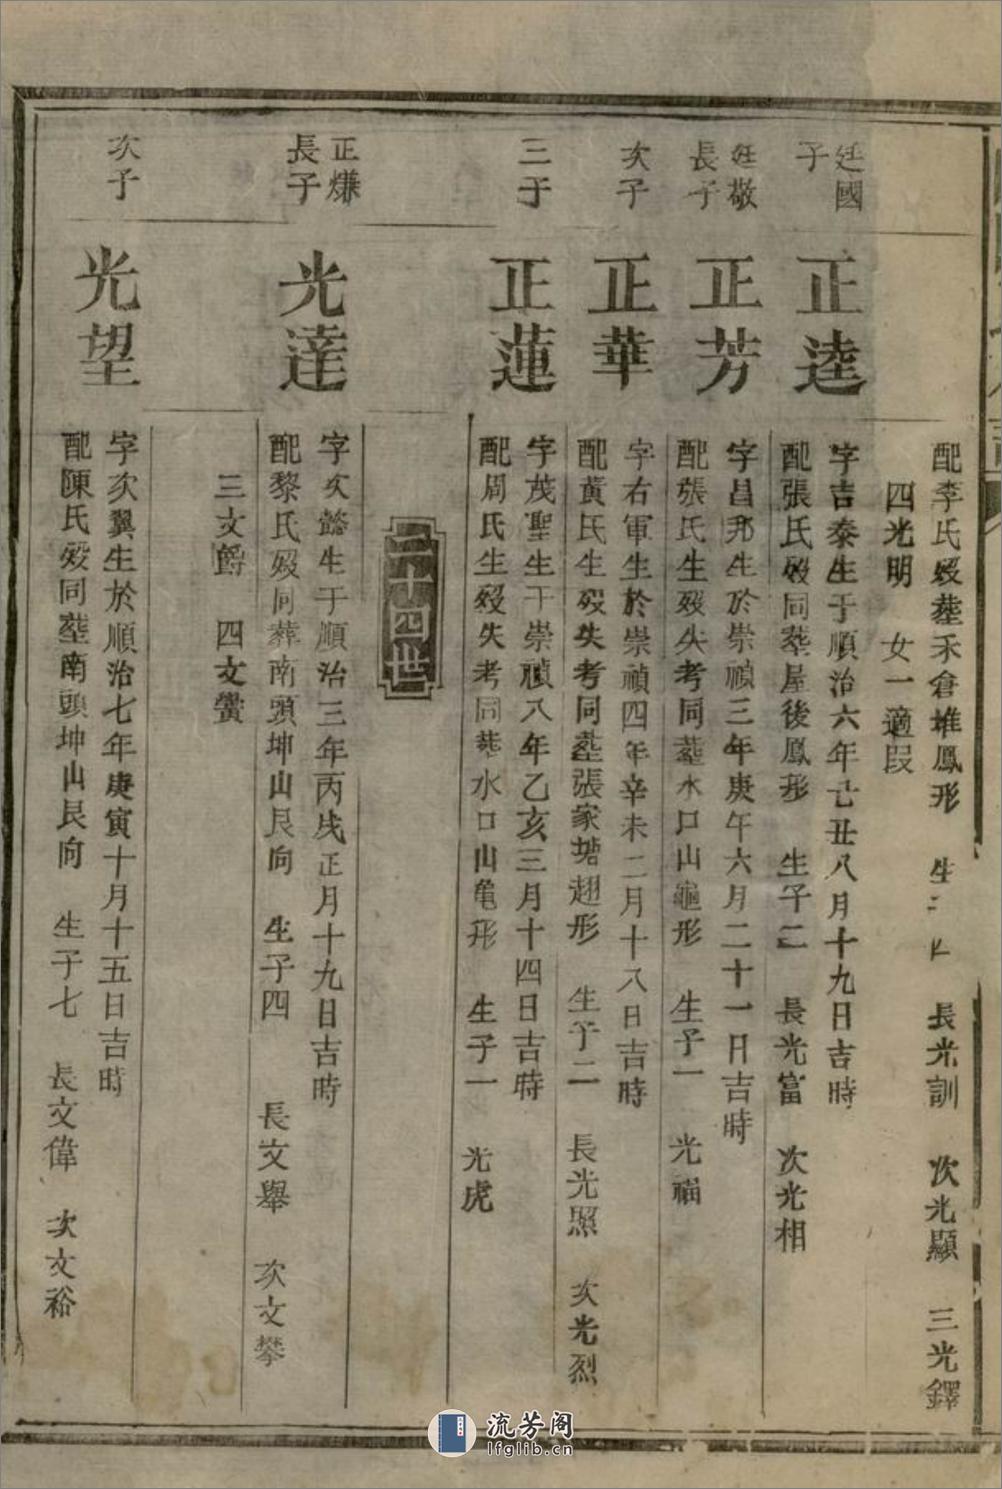 配李氏歿葬禾倉堆鳳形　生子四　長光訓　次光顯　三光鐸
四光明　女一適段
廷國子
正逵
字吉泰生于順治六年己丑八月十九日吉時
配張氏歿同葬屋後鳳形　生子二　長光富　次光相
廷敬長子
正芳
字昌邦生於崇禎三年庚午六月二十一日吉時
配張氏生歿失考同塟水口山龜形　生子一　光福
次子
正華
字右軍生於崇禎四年辛未二月十八日吉時
配黃氏生歿失考同塟張家塘翅形　生子二　長光照　次光烈
三子
正蓮
字茂聖生于崇禎八年乙亥三月十四日吉時
配周氏生歿失考同塟水口山亀形　生子一　光虎
二十四世
正㷿長子
光達
字次懿生于順治三年丙戌正月十九日吉時
配黎氏歿同葬南頭坤山艮向　生子四　長文舉　次文攀
三文爵　四文黌
次子
光望
字次翼生於順治七年庚寅十月十五日吉時
配陳氏歿同塟南頭坤山艮向　生子七　長文偉　次文裕
流芳阁
lfglib.cn